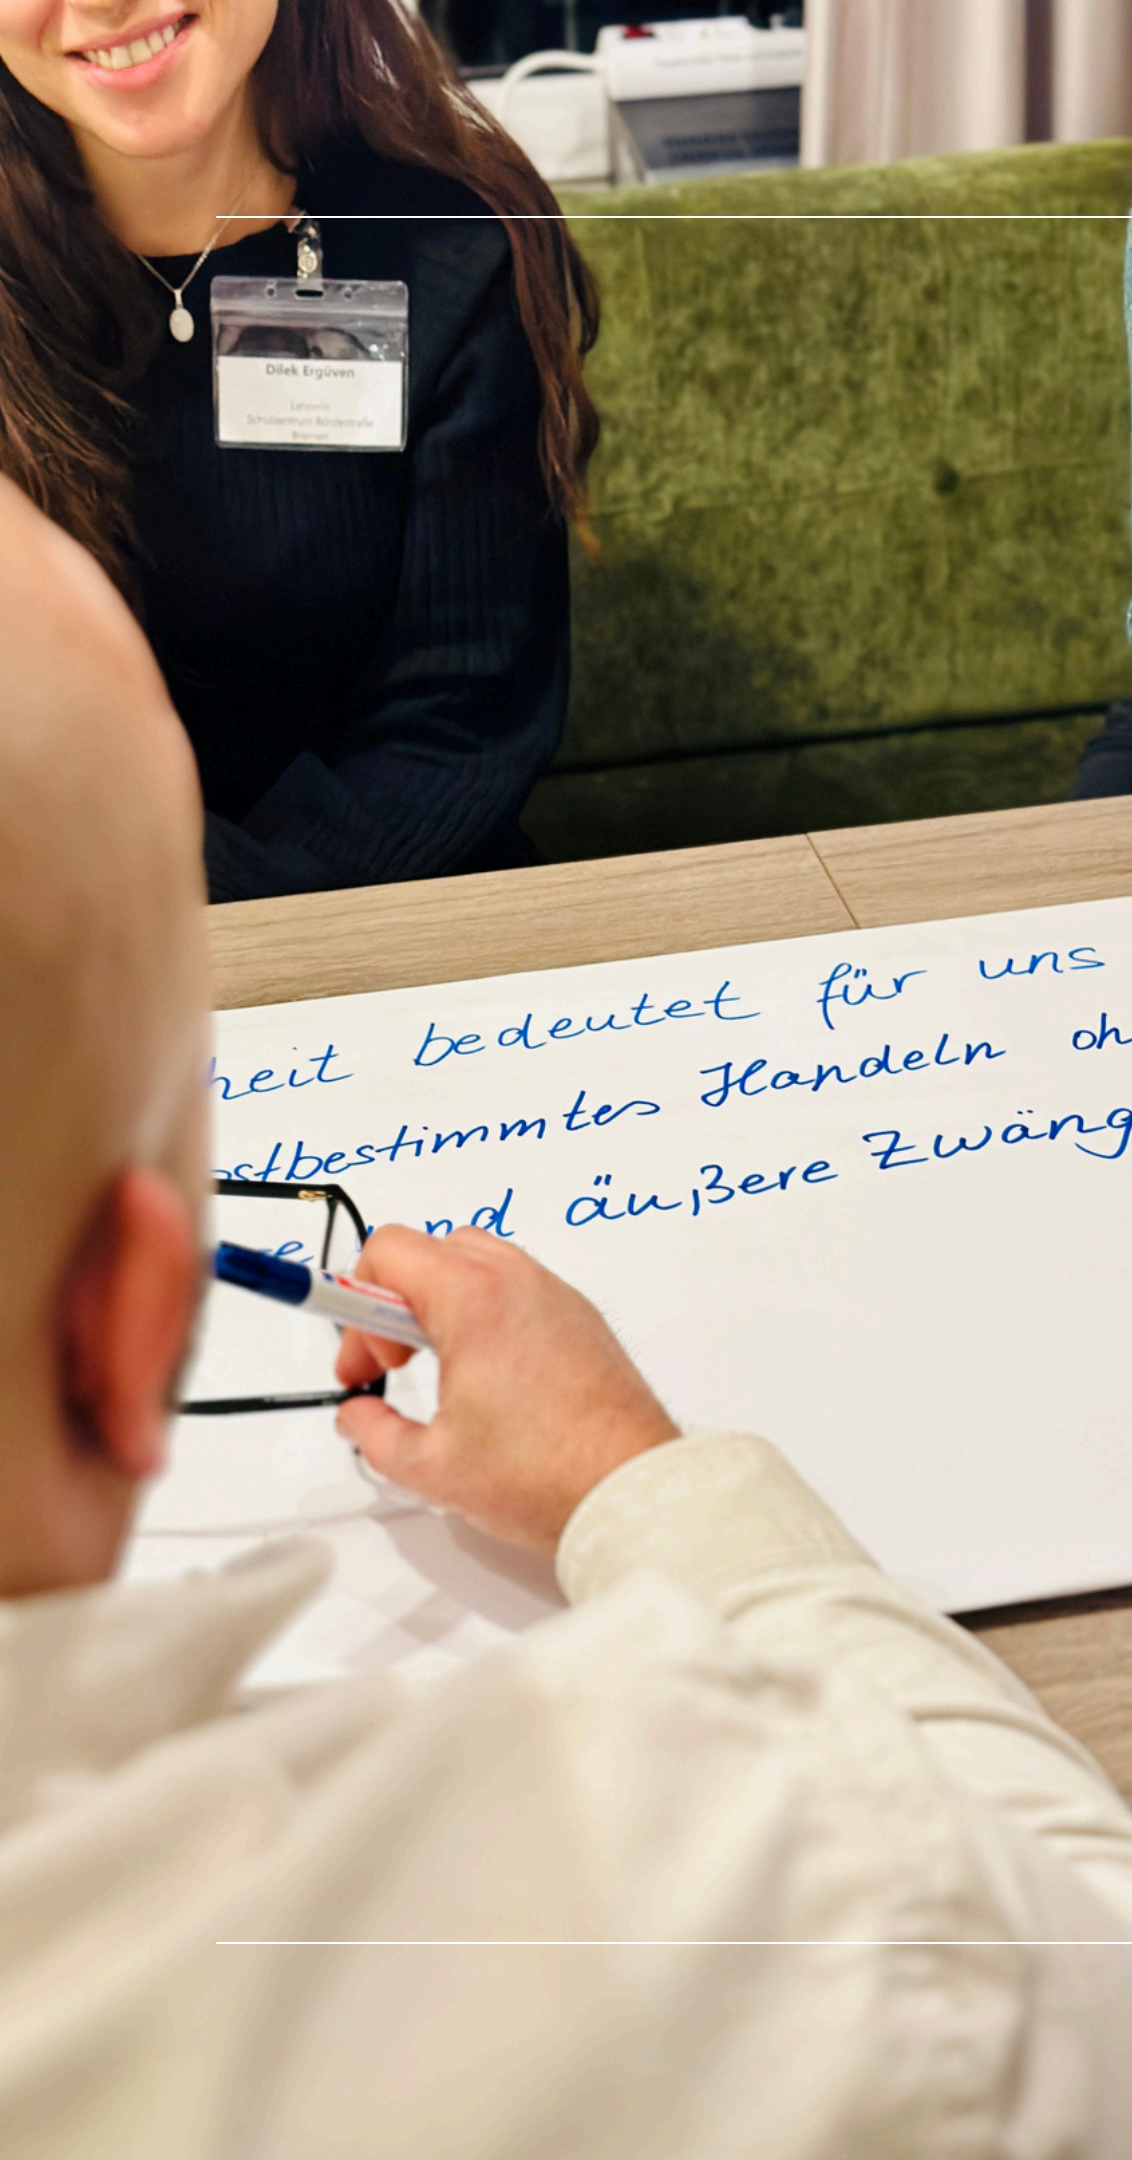 Dilek Ergüven
Lehrerin
Schulzentrum Bördestraße
Bremen
heit bedeutet für uns
stbestimmtes Handeln oh
re und äußere Zwäng